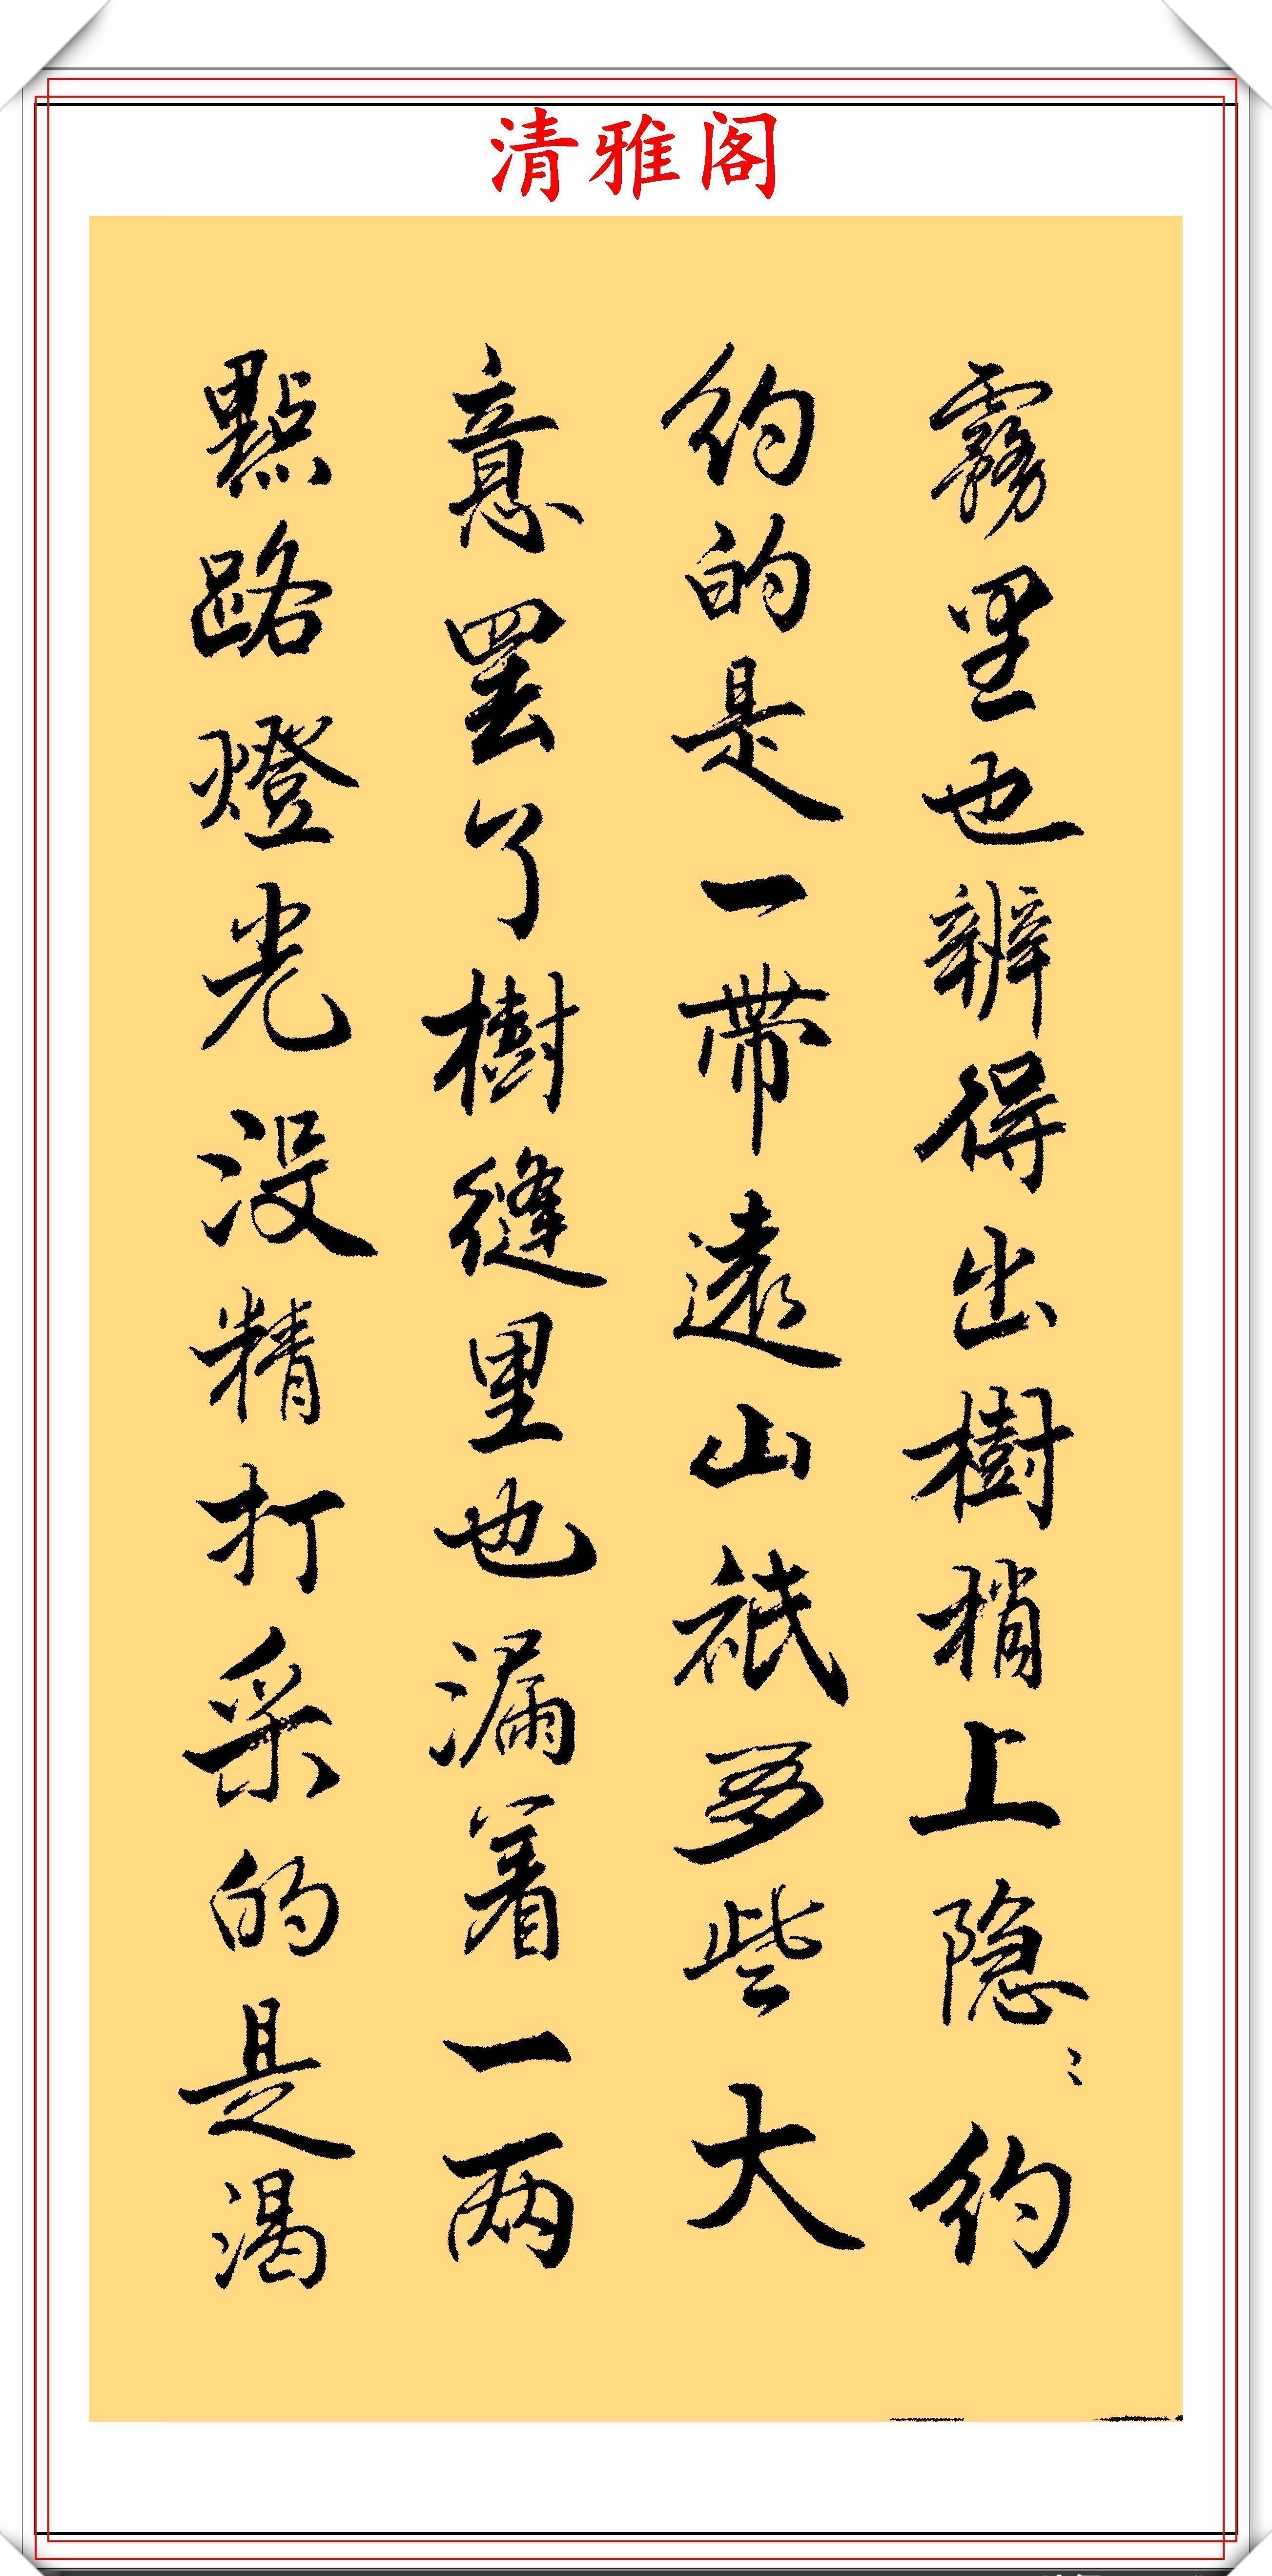 清雅阁
霧里也辨得出樹梢上隐〻约
约的是一帶遠山祇多些大
意罢了樹縫里也漏着一两
點路燈光没精打采的是渴